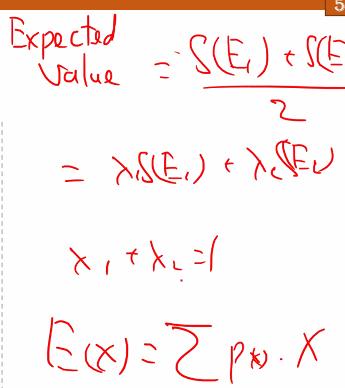 5
Expected
Value = S(E₁) + S(E
2
= λ₁S(E₁) + λ₂S(E₂)
λ₁ + λ₂ = 1
E(x) = Σ p(x) · X